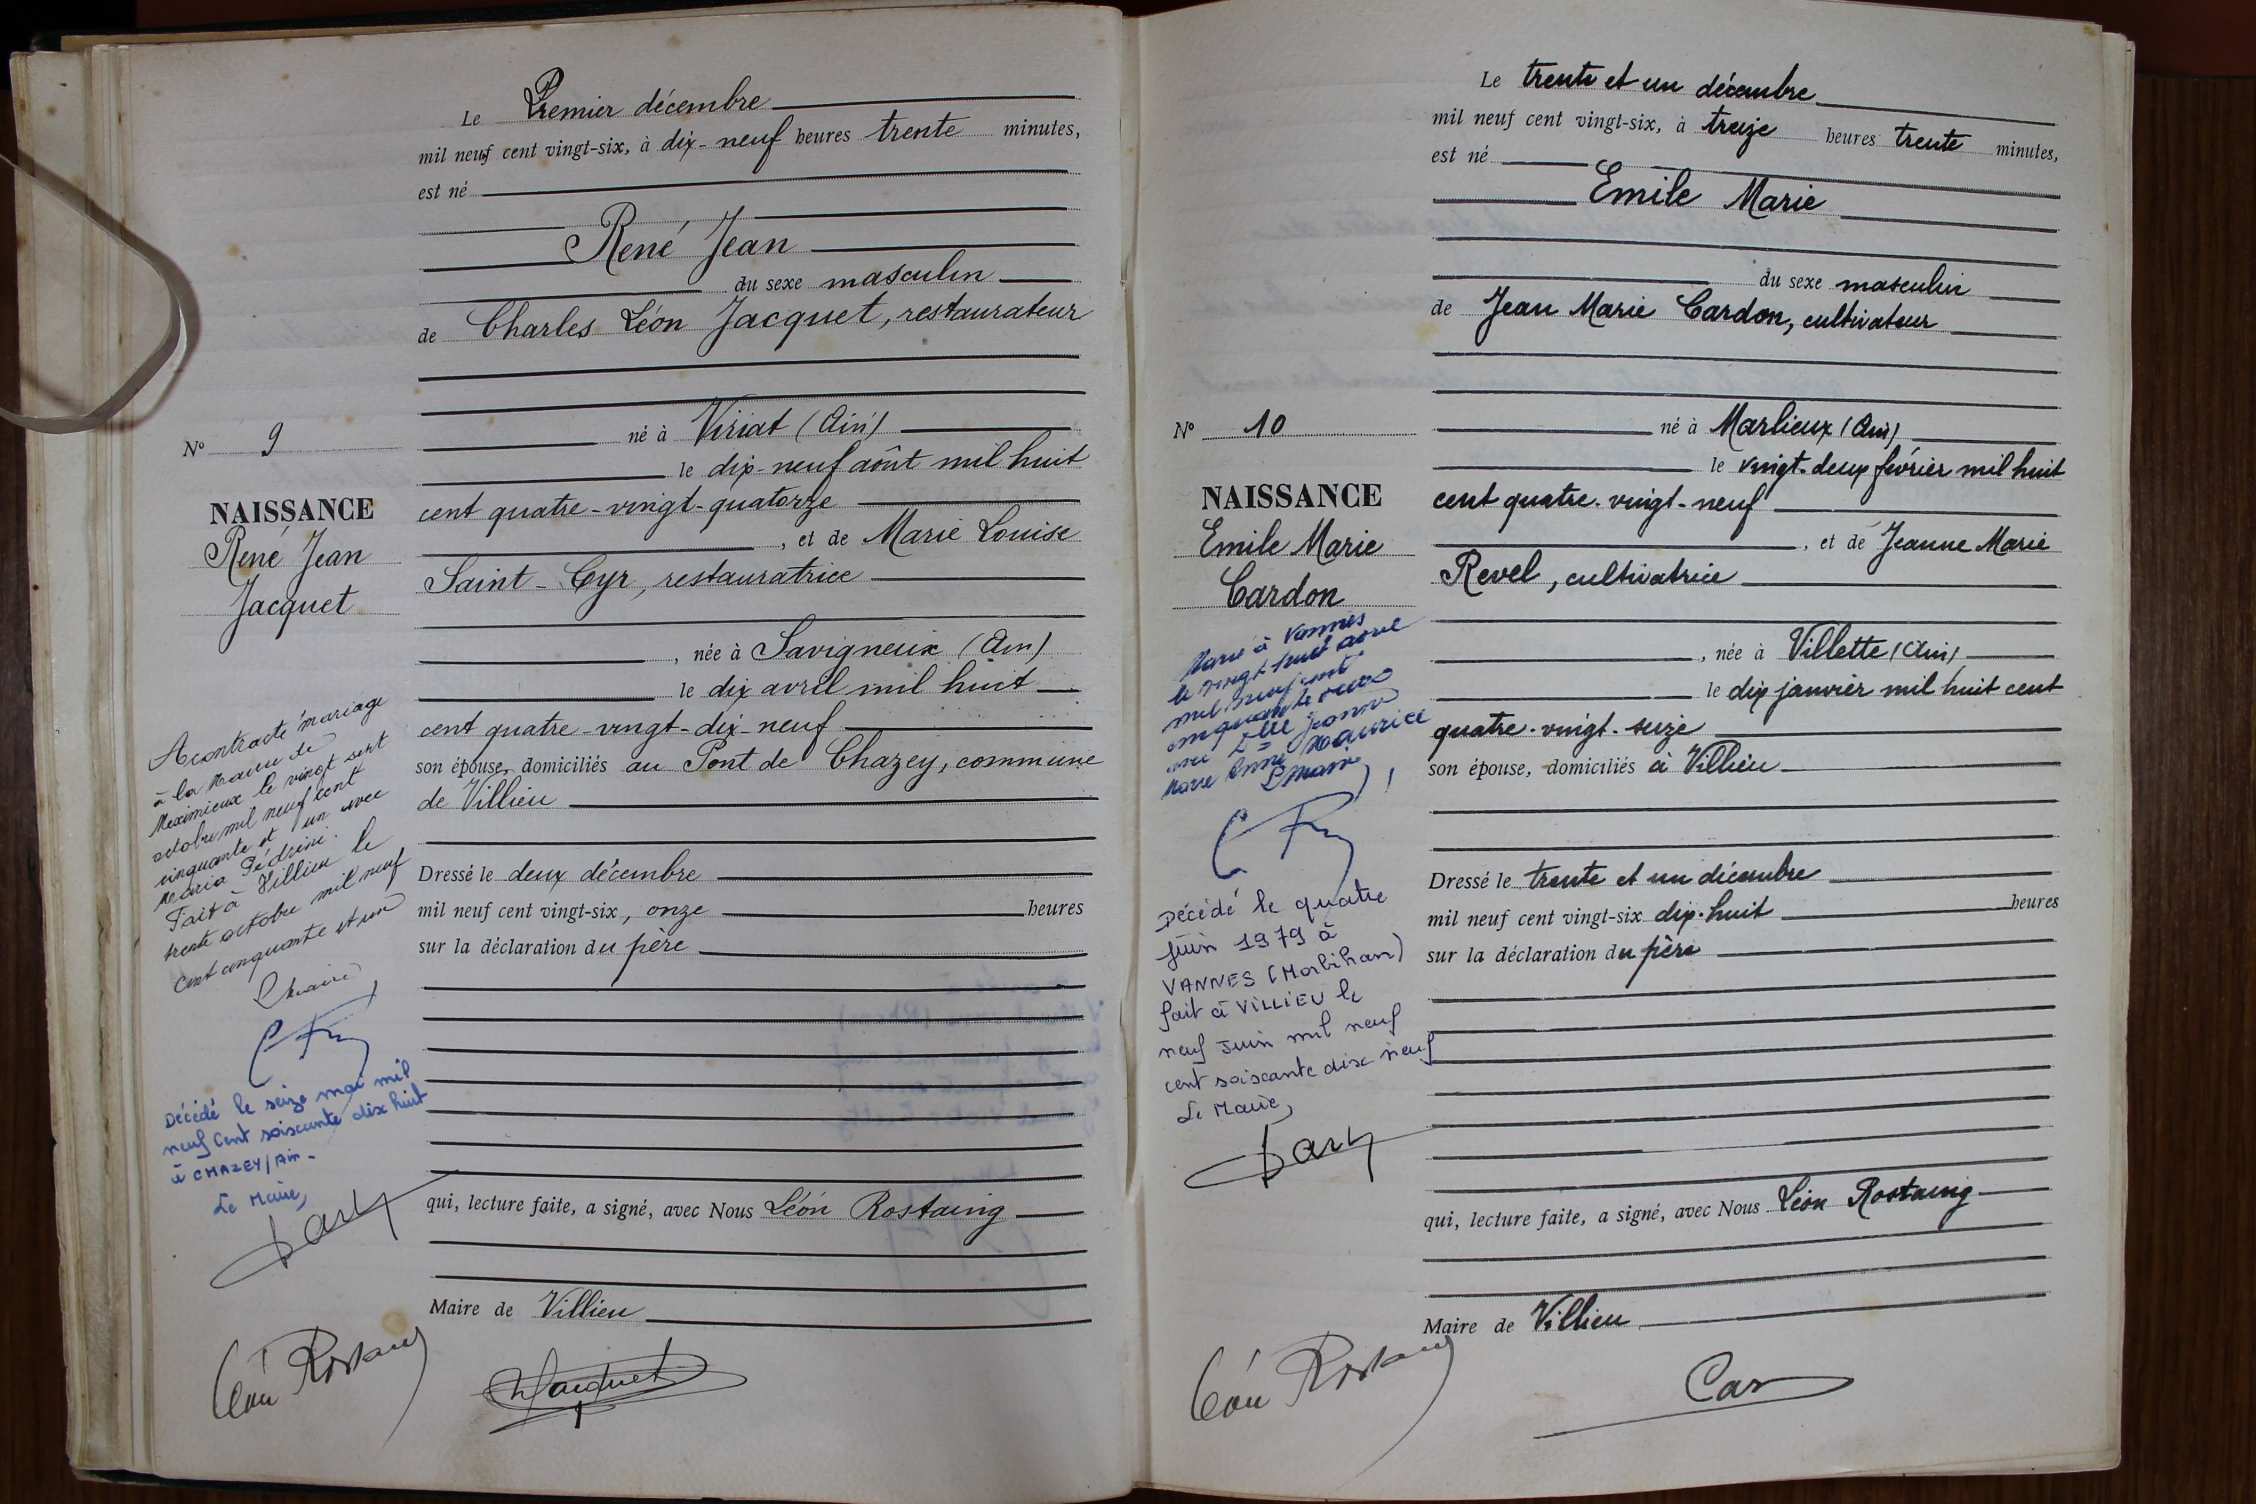 Le Premier décembre
mil neuf cent vingt-six, à dix-neuf heures trente minutes,
est né
René Jean
du sexe masculin
de Charles Léon Jacquet, restaurateur
né à Viriat (Ain)
le dix-neuf août mil huit
cent quatre-vingt-quatorze
, et de Marie Louise
Saint-Cyr, restauratrice
, née à Savigneux (Ain)
le dix avril mil huit
cent quatre-vingt-dix-neuf
son épouse, domiciliés au Pont de Chazey, commune
de Villieu
Dressé le deux décembre
mil neuf cent vingt-six, onze heures
sur la déclaration du père
qui, lecture faite, a signé, avec Nous Léon Rostaing
Maire de Villieu
Léon Rostaing
Jacquet
N° 9
NAISSANCE
René Jean
Jacquet
A contracté mariage
à la Mairie de
Meximieux le vingt sept
octobre mil neuf cent
cinquante et un avec
Maria Pédrini.
Fait à Villieu le
trente octobre mil neuf
cent cinquante et un
Le Maire
Décédé le seize mai mil
neuf cent soixante dix huit
à CHAZEY/Ain.
Le Maire,
Le trente et un décembre
mil neuf cent vingt-six, à treize heures trente minutes,
est né
Emile Marie
du sexe masculin
de Jean Marie Cardon, cultivateur
né à Marlieux (Ain)
le vingt-deux février mil huit
cent quatre-vingt-neuf
, et de Jeanne Marie
Revel, cultivatrice
, née à Villette (Ain)
le dix janvier mil huit cent
quatre-vingt-seize
son épouse, domiciliés à Villieu
Dressé le trente et un décembre
mil neuf cent vingt-six dix-huit heures
sur la déclaration du père
qui, lecture faite, a signé, avec Nous Léon Rostaing
Maire de Villieu
Léon Rostaing
Car
N° 10
NAISSANCE
Emile Marie
Cardon
Marié à Vannes
le vingt huit avril
mil neuf cent
cinquante deux
avec Elle Jeanne
Marie Anne Maurice
Le Maire
Décédé le quatre
juin 1979 à
VANNES (Morbihan)
fait à VILLIEU le
neuf Juin mil neuf
cent soixante dix neuf
Le Maire,